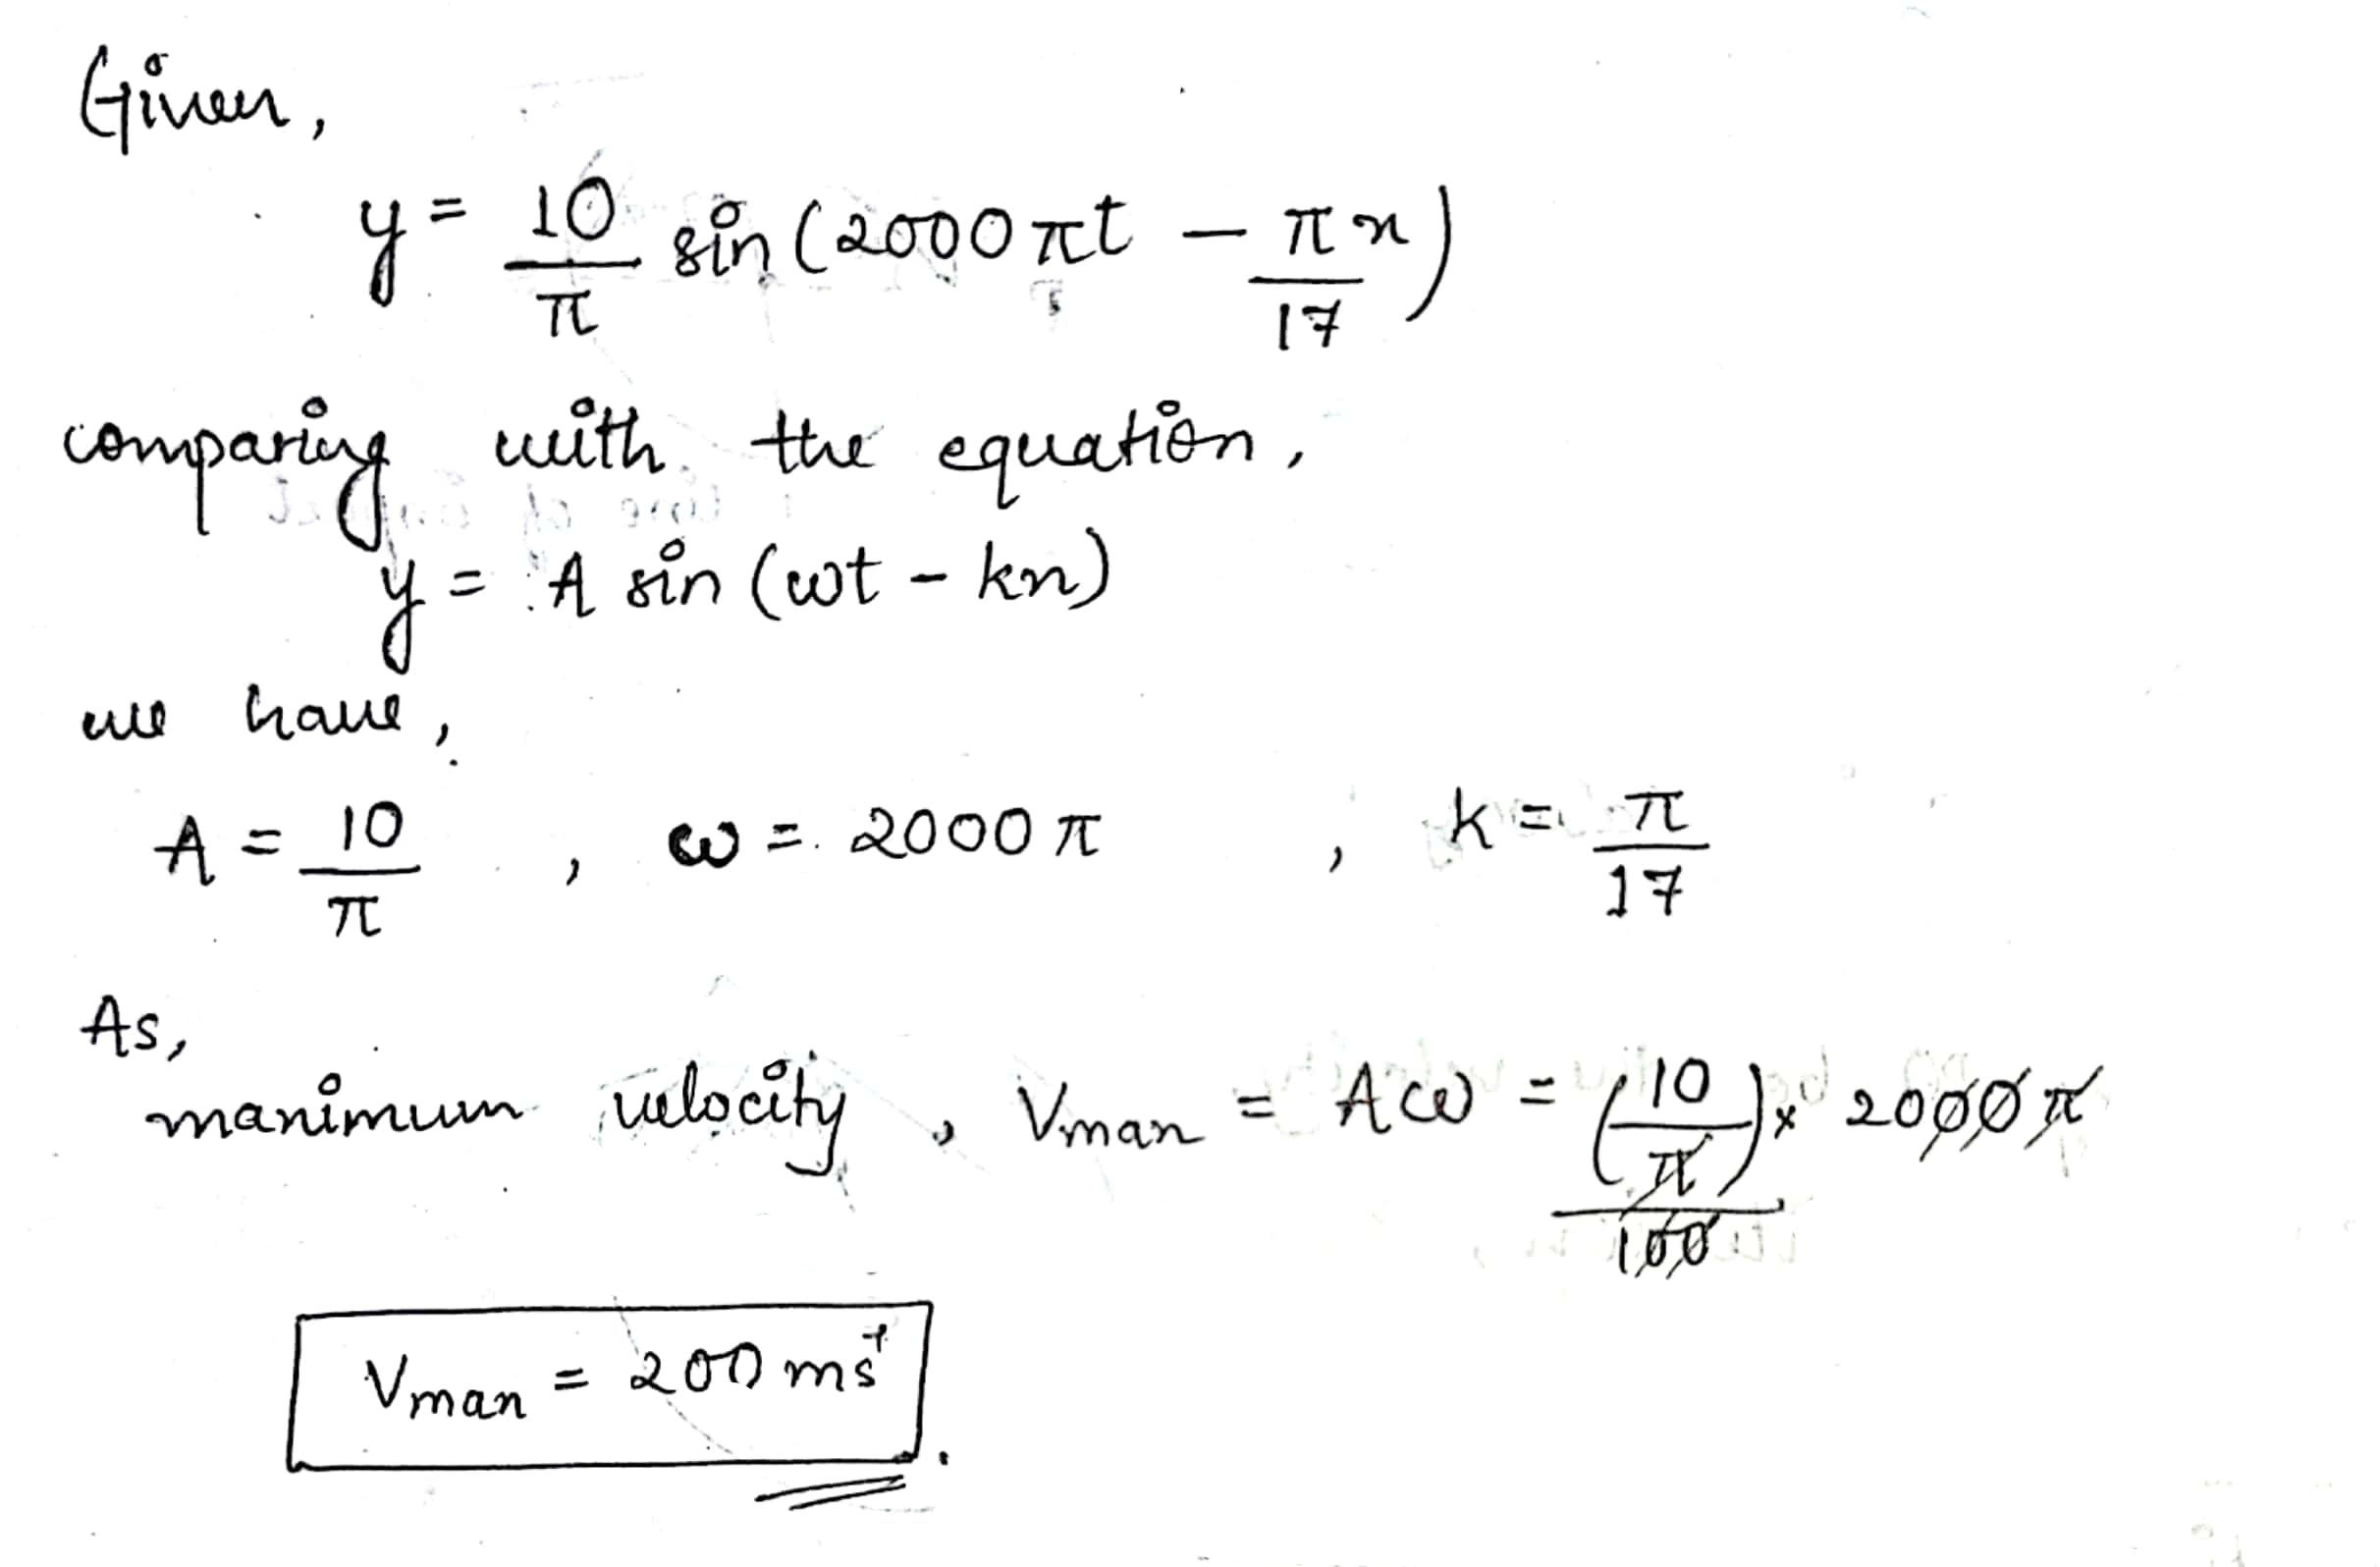 Given,
y = 10/π sin (2000 πt − πx/17)
comparing with the equation,
y = A sin (ωt − kx)
we have,
A = 10/π , ω = 2000 π , k = π/17
As,
maximum velocity, Vmax = Aω = (10/π) × 2000 π / 100
Vmax = 200 ms⁻¹.